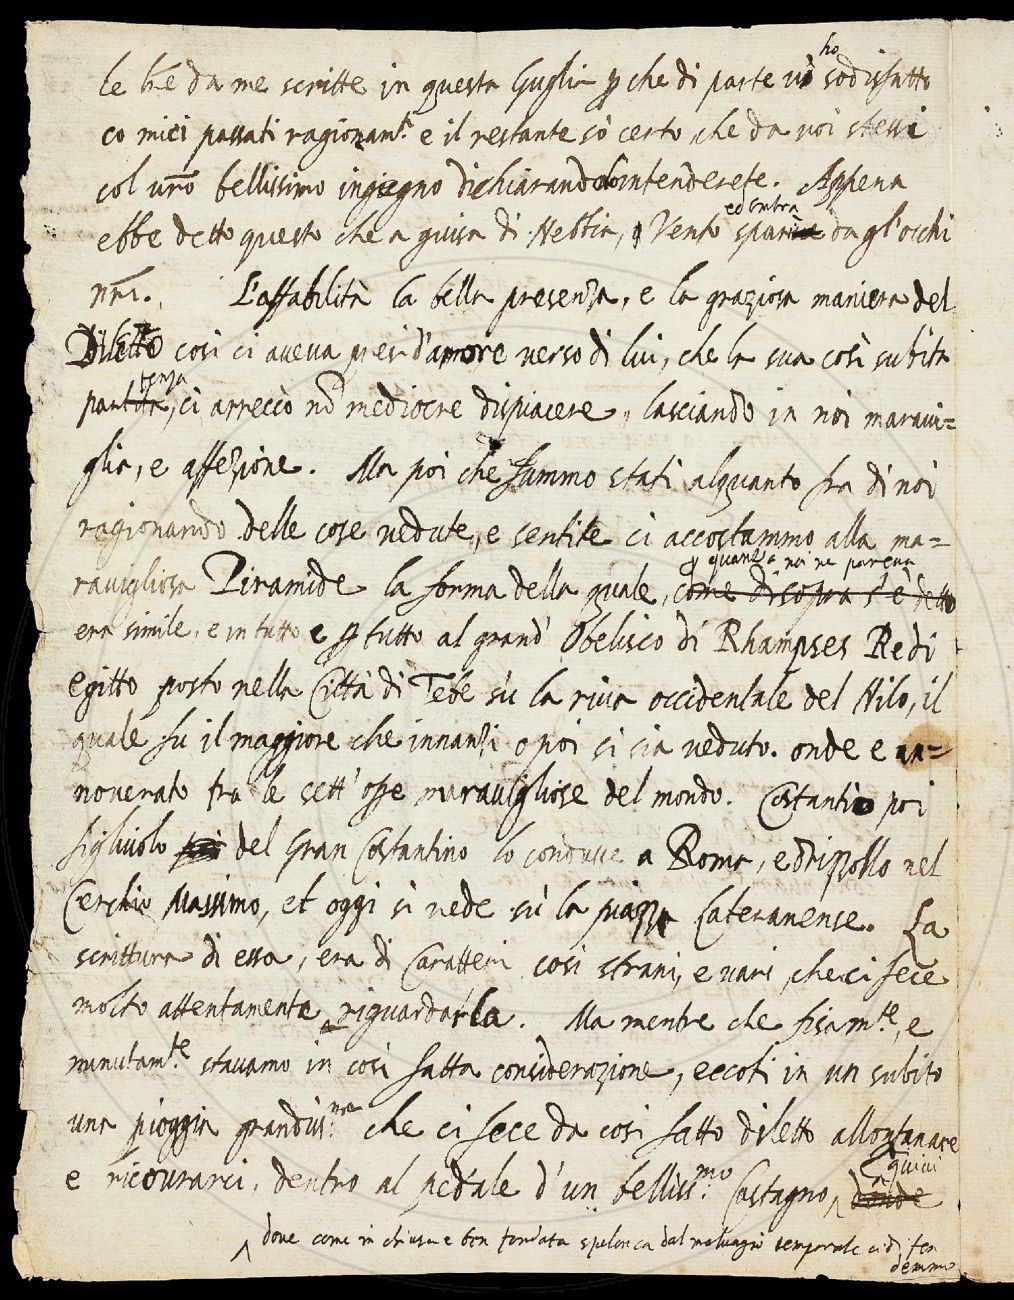 ho
le l.re da me scritte in questa Guglia p che di parte vi sodisfatto
co miei passati ragionam.ti e il restante sò certo che da voi stessi
col vro bellissimo ingiegno dichiarandolo intenderete. Appena
ed ombra
ebbe detto questo che a guisa di Nebbia, Vento sparia da gl'occhi
nri. L'affabilità la bella presenza, e la graziosa maniera del
Diletto così ci aveva presi d'amore verso di lui, che la sua così subita
tenza
partita, ci arrecò nõ mediocre dispiacere, lasciando in noi maravi=
glia, e affezione. Ma poi che fummo stati alquanto fra di noi
ragionando delle cose vedute, e sentite ci accostammo alla ma=
p quanto a noi ne pareva
ravigliosa Piramide la forma della quale, come di sopra s'è detto
era simile, e in tutto e p tutto al grand' Obelisco di Rhampses Re di
egitto posto nella Città di Tebe sù la riva occidentale del Nilo, il
quale fu il maggiore che innanzi o poi si sia veduto. onde e an=
noverato fra le sett' ope maravigliose del mondo. Costantio poi
figliuolo del Gran Costantino lo condusse a Roma, e drizzollo nel
Cerchio Massimo, et oggi si vede sù la piazza Lateranense. La
scrittura di essa, era di Caratteri così strani, e vari, che ci fece
molto attentamente riguardarla. Ma mentre che fisam.te, e
minutam.te stavamo in così fatta considerazione, eccoti in un subito
una pioggia grandiss.ma che ci fece da così fatto diletto allontanare
e ricovrarci, dentro al pedale d'un belliss.mo Castagno, donde
quivi
dove come in chiusa e ben fondata spelonca dal malvagio temporale ci difen
demmo